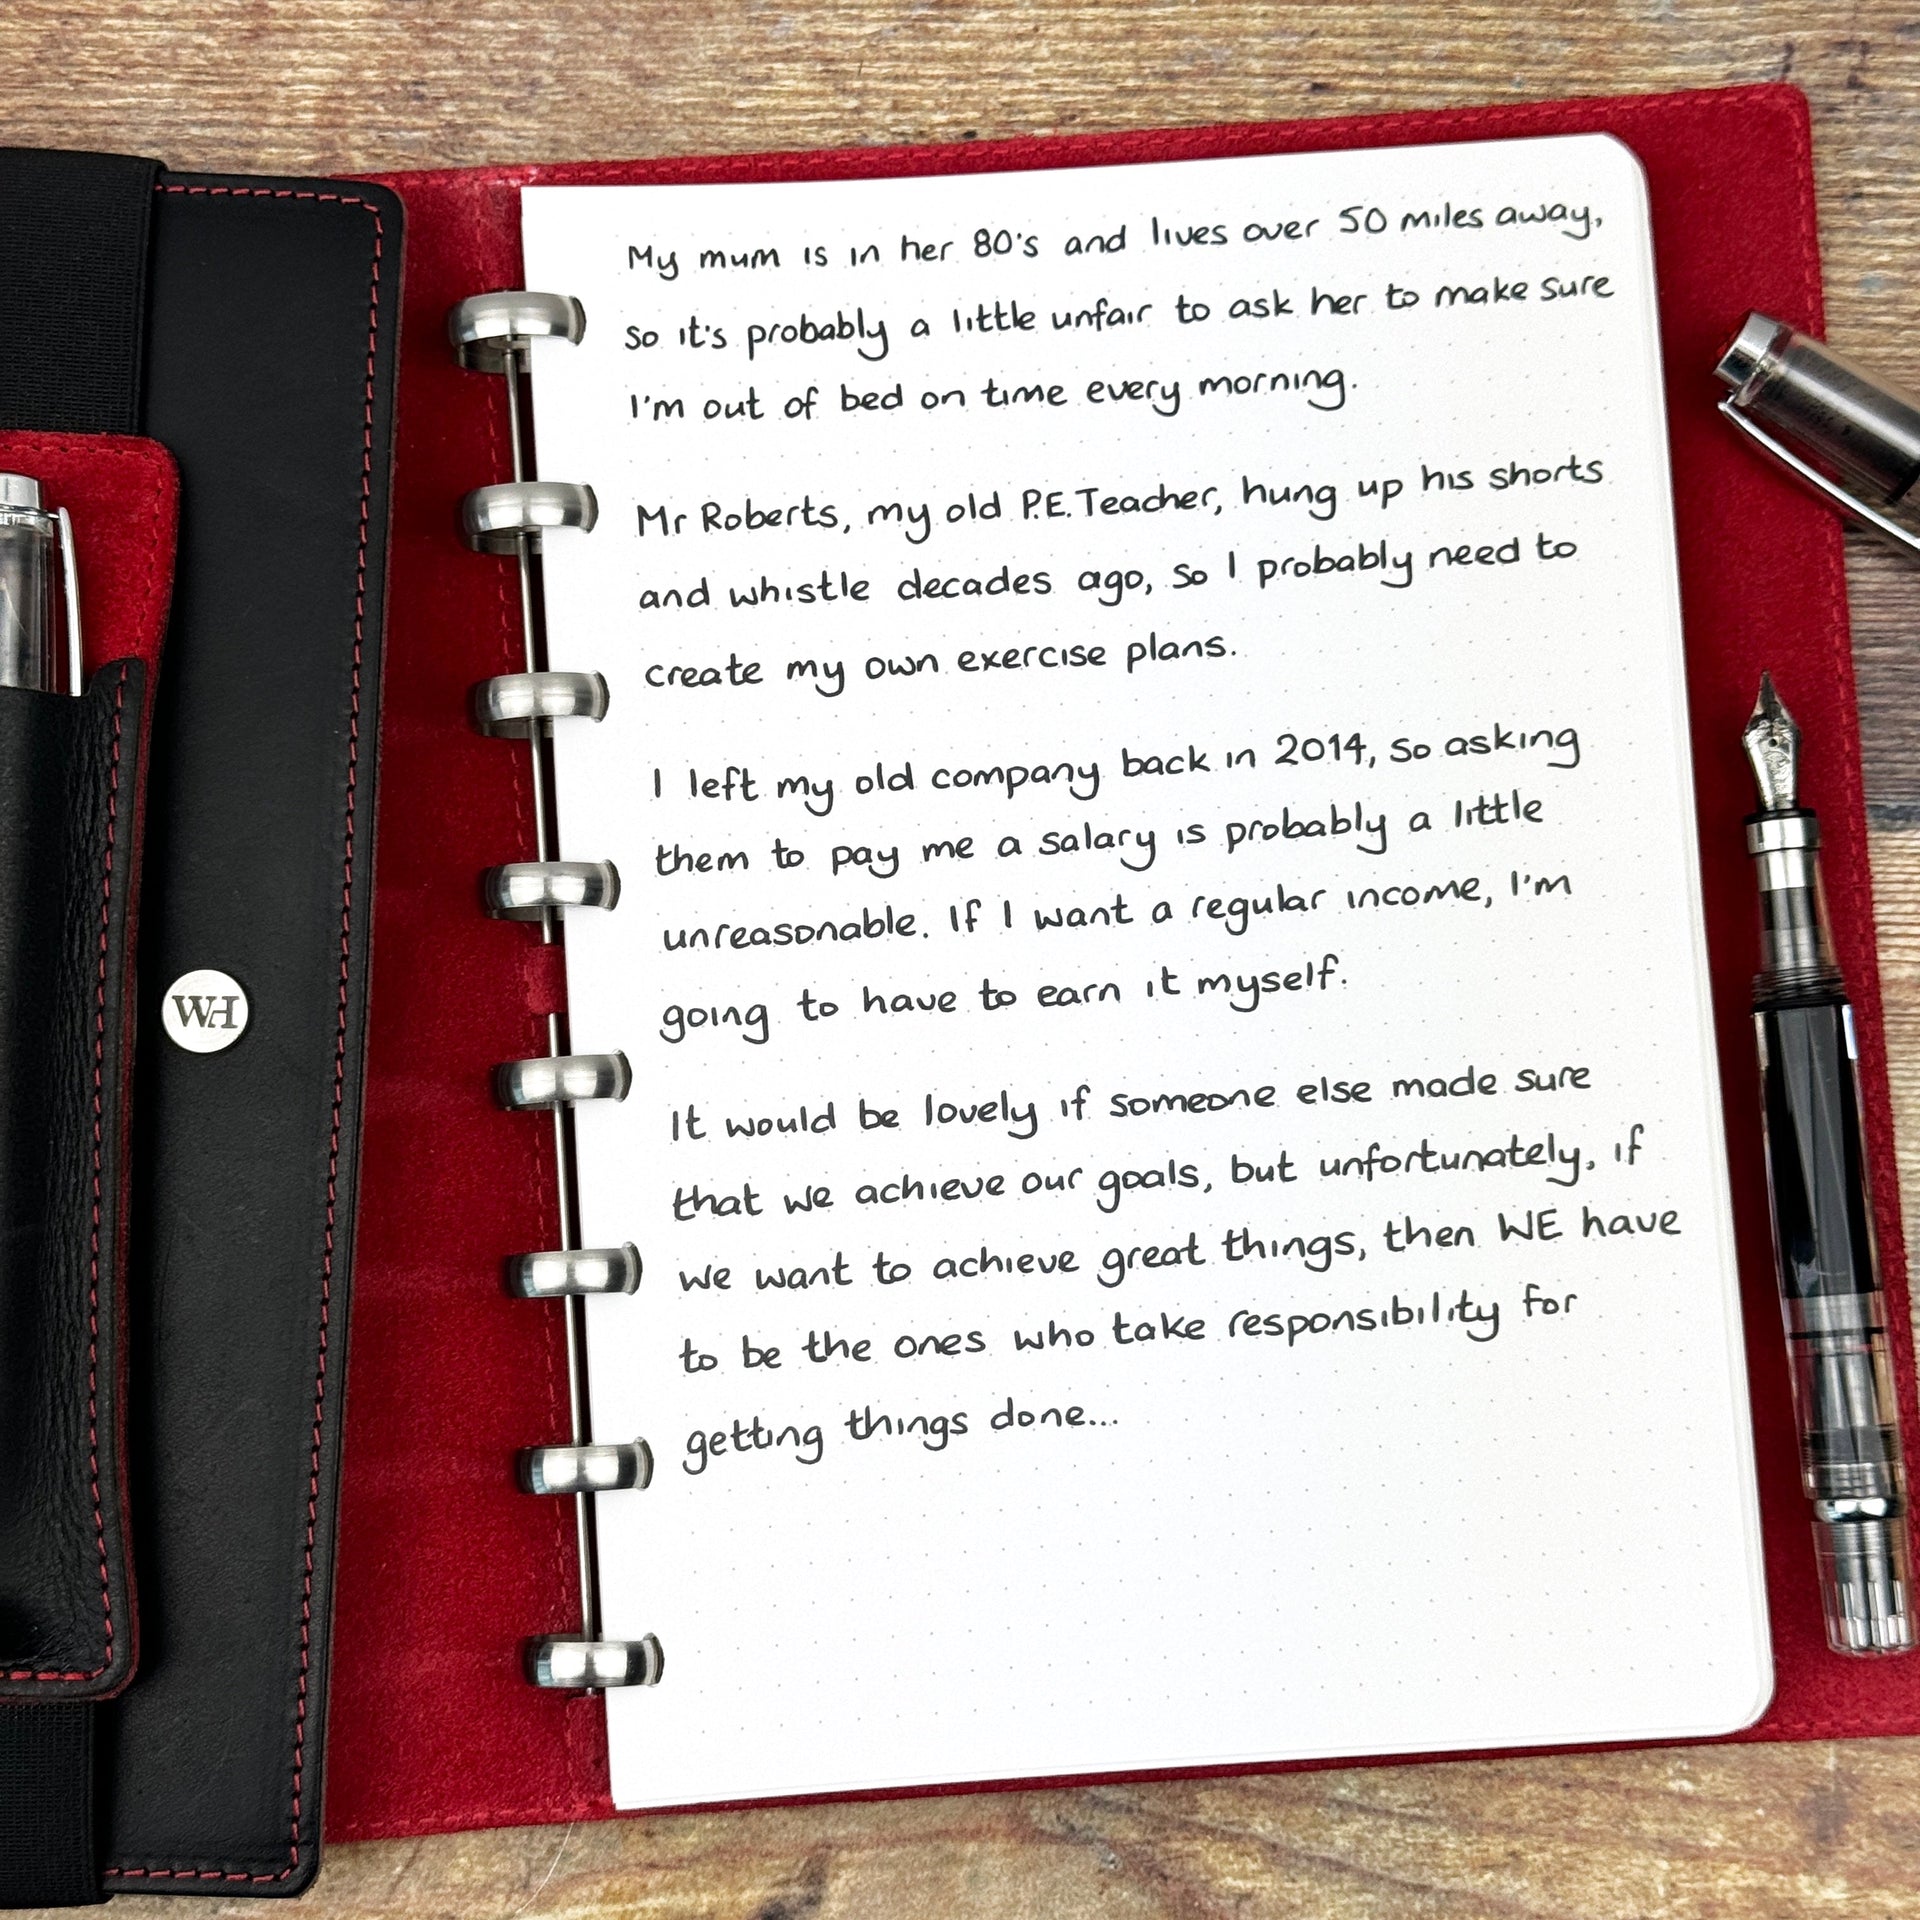 My mum is in her 80's and lives over 50 miles away,
so it's probably a little unfair to ask her to make sure
I'm out of bed on time every morning.
Mr Roberts, my old P.E. Teacher, hung up his shorts
and whistle decades ago, so I probably need to
create my own exercise plans.
I left my old company back in 2014, so asking
them to pay me a salary is probably a little
unreasonable. If I want a regular income, I'm
going to have to earn it myself.
It would be lovely if someone else made sure
that we achieve our goals, but unfortunately, if
we want to achieve great things, then WE have
to be the ones who take responsibility for
getting things done...
WH